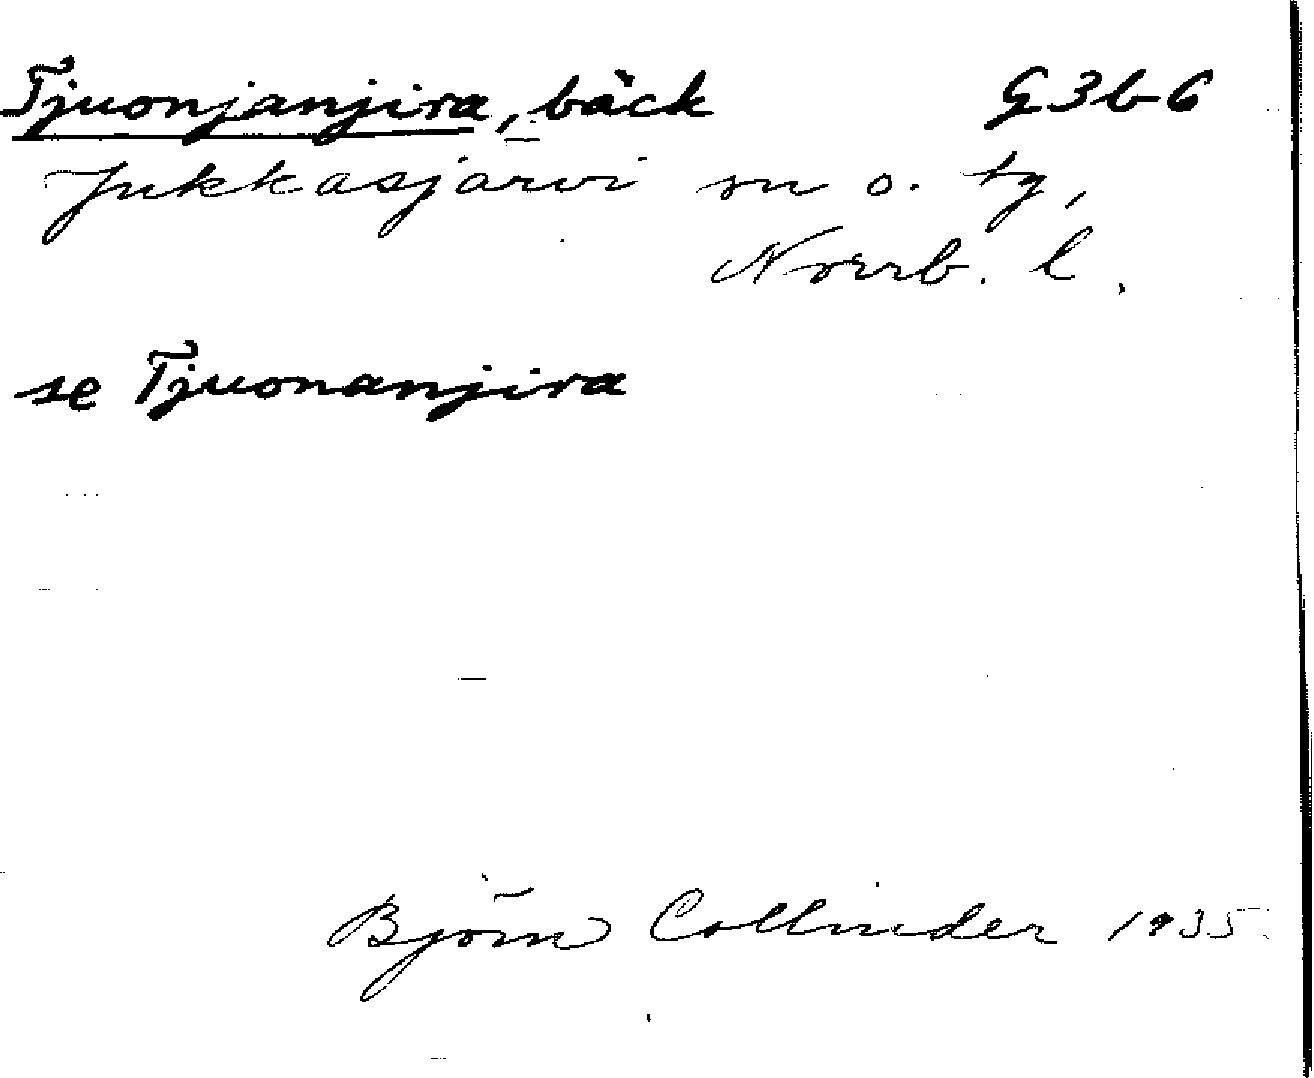 Tjuonjanjira, bäck G3b6
Jukkasjärvi sn o. tg,
Norrb. l.
se Tjuonanjira
Björn Collinder 1935